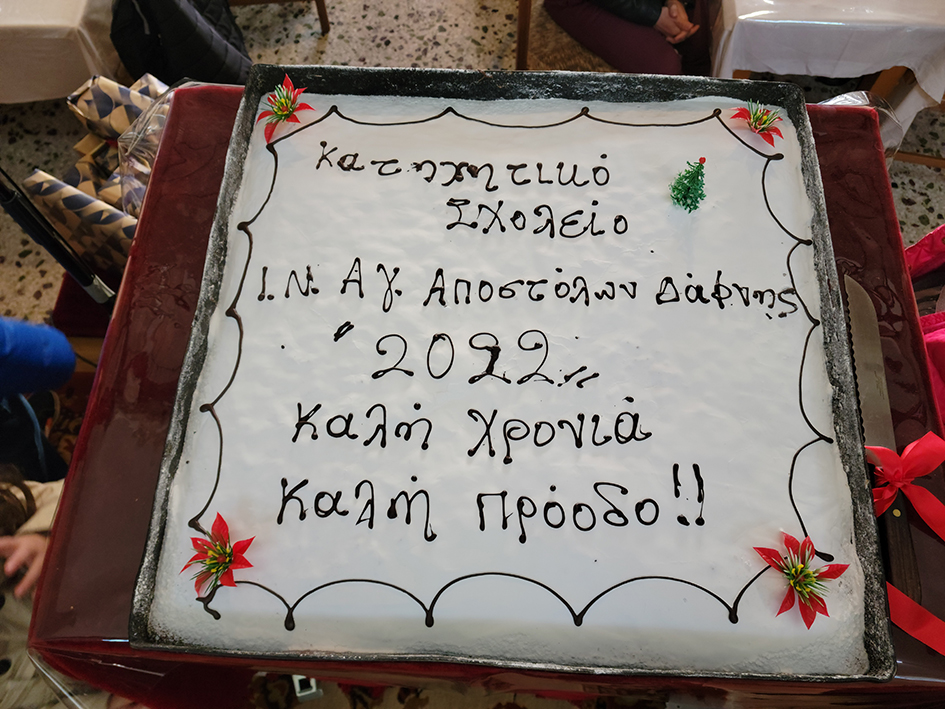 Κατηχητικό
Σχολείο
Ι.Ν. Αγ. Αποστόλων Δάφνης
"2022"
Καλή χρονιά
Καλή πρόοδο!!